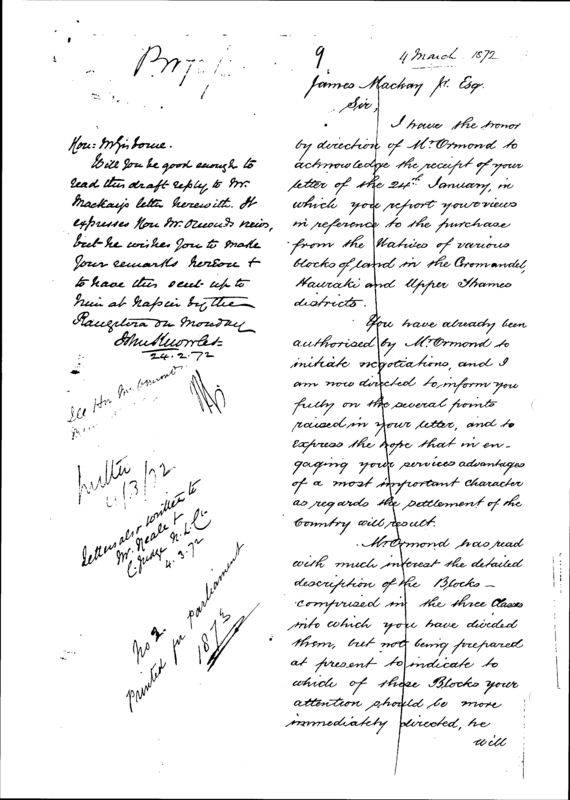 9
4 March 1872
James Mackay Jr. Esq.
Sir,
I have the honor
by direction of Mr Ormond to
acknowledge the receipt of your
letter of the 24th January, in
which you report your views
in reference to the purchase
from the Natives of various
blocks of land in the Coromandel,
Hauraki and Upper Thames
districts.
You have already been
authorised by Mr Ormond to
initiate negotiations, and I
am now directed to inform you
fully on the several points
raised in your letter, and to
express the hope that in en-
gaging your services advantages
of a most important character
as regards the settlement of the
Country will result.
Mr Ormond has read
with much interest the detailed
description of the Blocks –
comprised in the three Classes
into which you have divided
them, but not being prepared
at present to indicate to
which of these Blocks your
attention should be more
immediately directed, he
will
Hon: Mr Gisborne.
Will you be good enough to
read this draft reply to Mr.
Mackay's letter herewith. It
expresses Hon Mr. Ormond's views,
but he wishes you to make
your remarks hereon +
to have this sent up to
him at Napier by the
Rangatira on Monday
John Knowles
24.2.72
See Hon Mr. Ormond's
written
4/3/72
Letters also written to
Mr. Neale +
C. Judge N.L.C.
4.3.72
No 2.
Printed for Parliament
1873